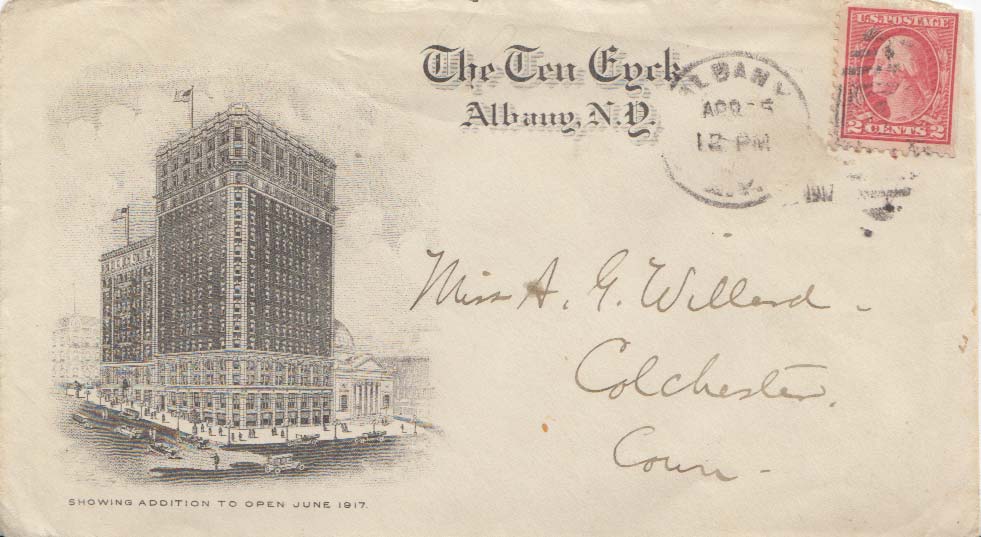 The Ten Eyck
Albany, N.Y.
ALBANY
APR
12 PM
N.Y.
1917
U.S. POSTAGE
2 CENTS 2
Miss A. G. Willard -
Colchester.
Conn -
SHOWING ADDITION TO OPEN JUNE 1917.